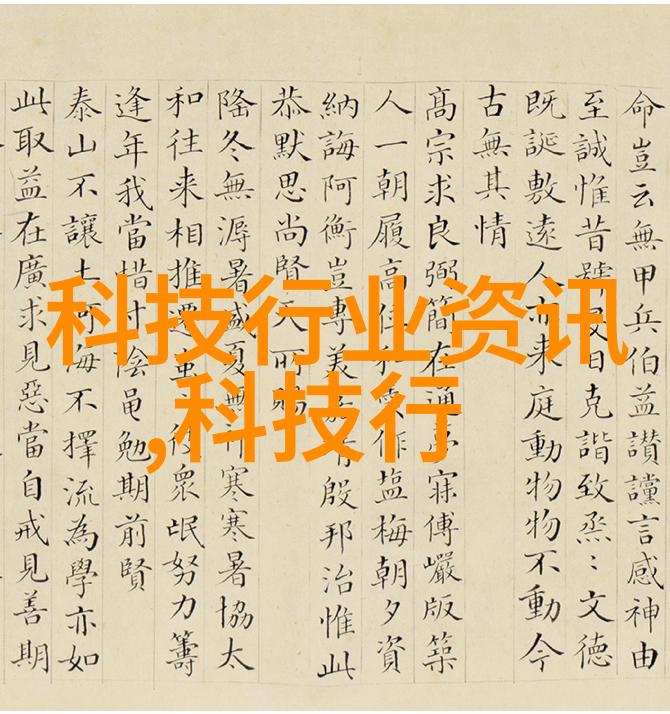 命豈云無甲兵伯益讃讜言感神由
至誠惟昔號
克諧致烝〻文德
既誕敷遠人
來庭動物物不動今
古無其情
高宗求良弼簡在通
寐傅巖版築
人一朝履高位
作鹽梅朝夕資
納誨阿衡豈專美
殷邦治惟此
恭默思尚賢天所賜
隆冬無溽暑盛夏無
寒寒暑協太
和往来相推遷
衆氓努力籌
逢年我當惜寸陰黽勉期前賢
泰山不讓土河海不擇流為學亦如
此取益在廣求見惡當自戒見善期
科技行业资讯
,科技行